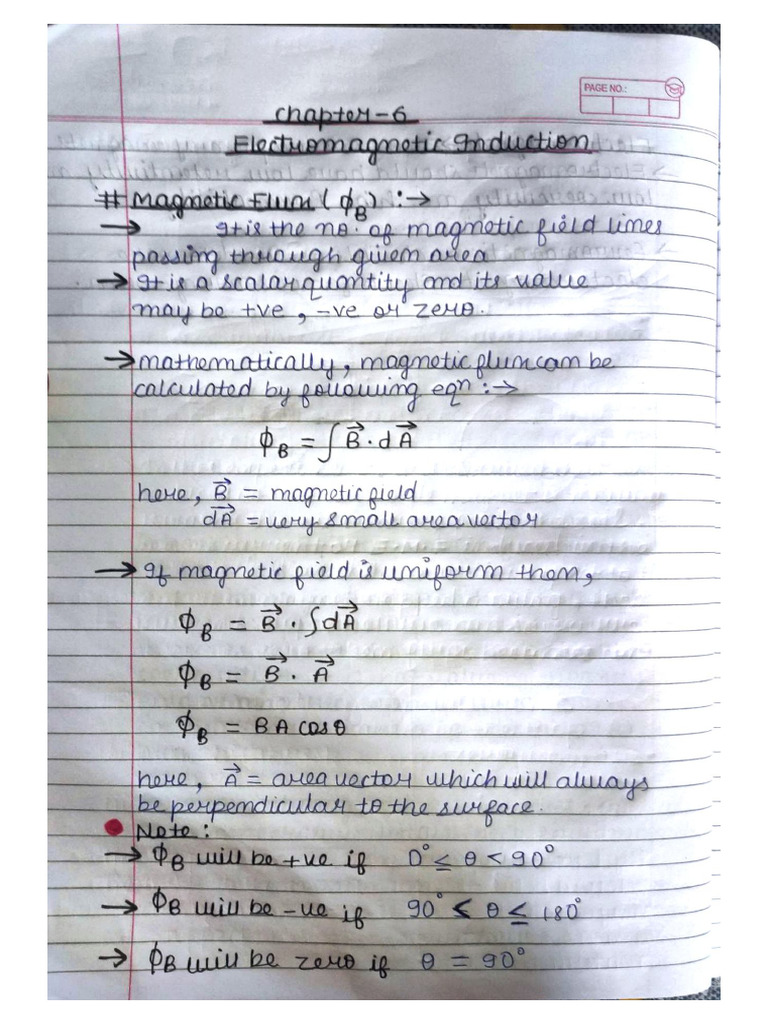 PAGE NO.:
Chapter-6
Electromagnetic Induction
# Magnetic Flux (ϕ_B) :→
→ It is the no. of magnetic field lines
passing through given area
→ It is a scalar quantity and its value
may be +ve, -ve or zero.
→ mathematically, magnetic flux can be
calculated by following eqⁿ :→
ϕ_B = ∫ B⃗ · dA⃗
here, B⃗ = magnetic field
dA⃗ = very small area vector
→ If magnetic field is uniform then,
ϕ_B = B⃗ · ∫dA⃗
ϕ_B = B⃗ · A⃗
ϕ_B = BA cosθ
here, A⃗ = area vector which will always
be perpendicular to the surface.
Note:
→ ϕ_B will be +ve if 0° ≤ θ < 90°
→ ϕ_B will be -ve if 90° < θ ≤ 180°
→ ϕ_B will be zero if θ = 90°